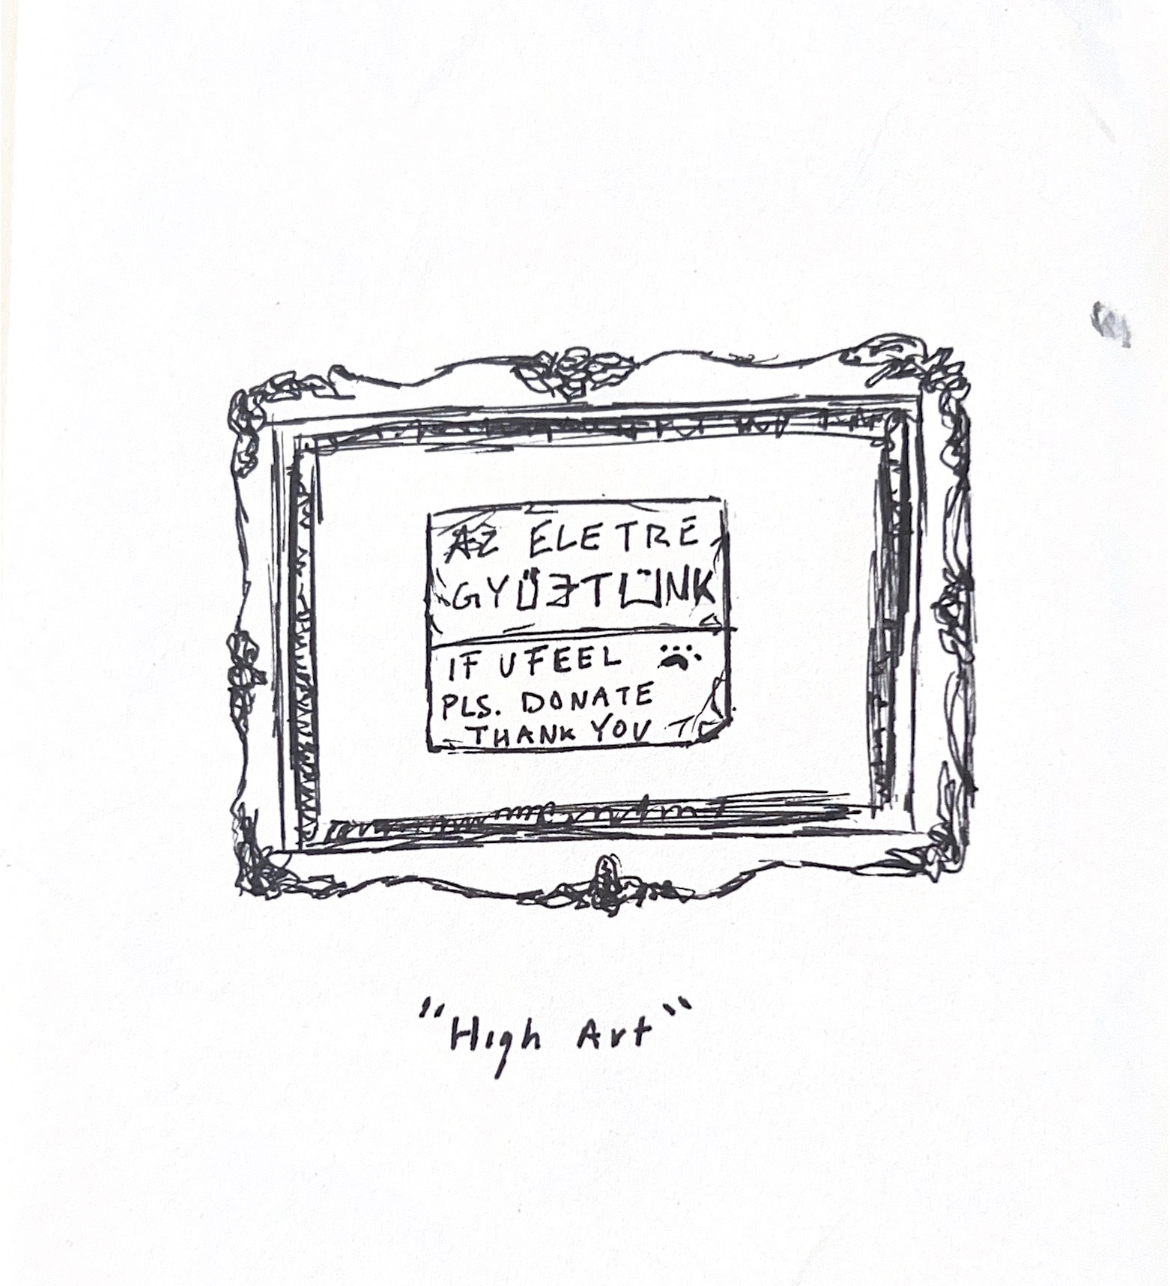 AZ ELETRE
GYŰJTÜNK
IF U FEEL
PLS. DONATE
THANK YOU
"High Art"